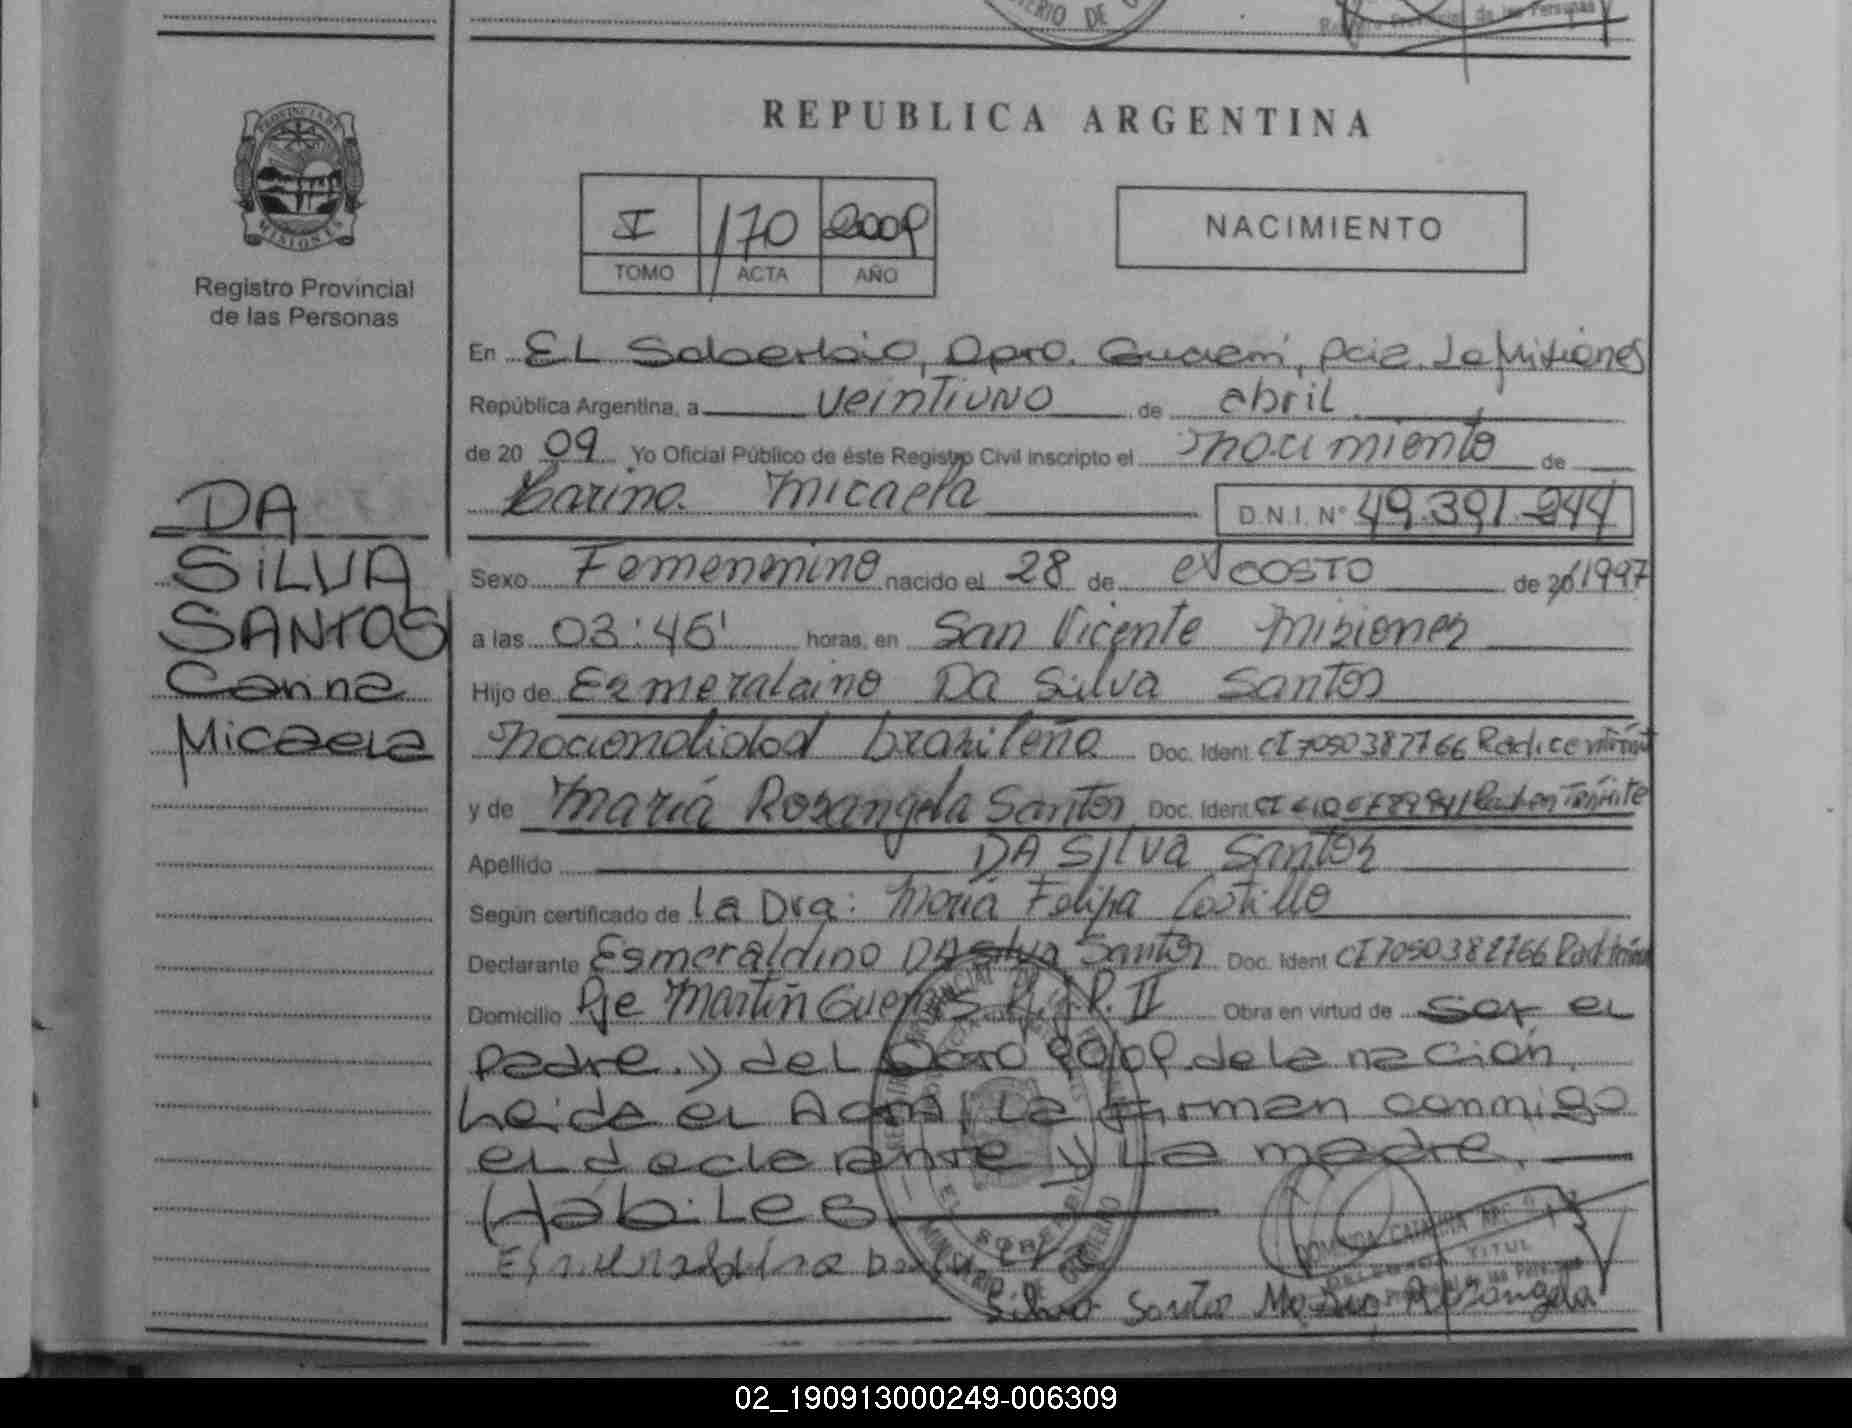 PROVINCIA DE
MISIONES
Registro Provincial
de las Personas
DA
SILVA
SANTOS
Carina
Micaela
REPUBLICA ARGENTINA
I 170 2009
TOMO ACTA AÑO
NACIMIENTO
En EL Soberbio, Dpto. Guaraní, Pcia. de Misiones
República Argentina, a veintiuno de abril
de 20 09 Yo Oficial Público de éste Registro Civil inscripto el nacimiento de
Carina Micaela D.N.I. Nº 49.391.944
Sexo Femenmino nacido el 28 de agosto de 20 1997
a las 03:45' horas, en San Vicente Misiones
Hijo de Esmeraldino Da Silva Santos
nacionalidad brasileña Doc. Ident. CI 7050382766 Radic en trámit
y de María Rosangela Santos Doc. Ident. CI Rad en Trámite
Apellido DA Silva Santos
Según certificado de La Dra: María Felipa Castillo
Declarante Esmeraldino DA Silva Santos Doc. Ident CI 7050382766
Domicilio Pje Martín Guemes II Obra en virtud de ser el
Padre. y del 90/09 de la nación,
Leida el Acta, La firman conmigo
el declarante y La madre,
Hábiles
Silva Santos María Rosangela
02_190913000249-006309